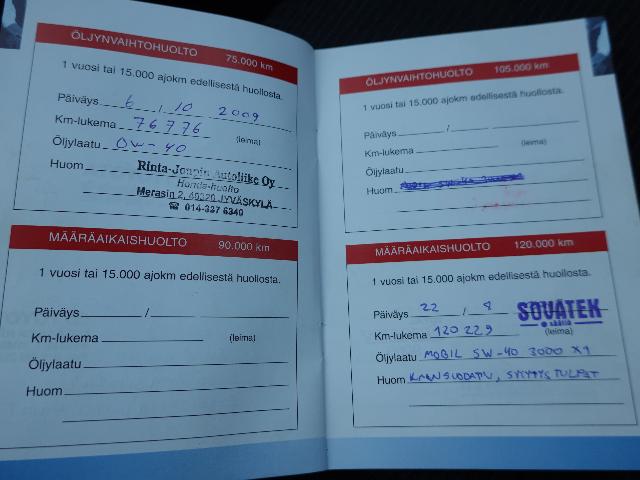 ÖLJYNVAIHTOHUOLTO 75.000 km
1 vuosi tai 15.000 ajokm edellisestä huollosta.
Päiväys 6 / 10 2009
Km-lukema 76776 (leima)
Öljylaatu 0W-40
Huom Rinta-Joupin Autoliike Oy
Honda-huolto
Merasin 2, 40320 JYVÄSKYLÄ
☎ 014-337 6340
MÄÄRÄAIKAISHUOLTO 90.000 km
1 vuosi tai 15.000 ajokm edellisestä huollosta.
Päiväys /
Km-lukema (leima)
Öljylaatu
Huom
ÖLJYNVAIHTOHUOLTO 105.000 km
1 vuosi tai 15.000 ajokm edellisestä huollosta.
Päiväys /
Km-lukema (leima)
Öljylaatu
Huom
MÄÄRÄAIKAISHUOLTO 120.000 km
1 vuosi tai 15.000 ajokm edellisestä huollosta.
Päiväys 22 / 8 SOVATEK
Km-lukema 120 229 säätiö (leima)
Öljylaatu MOBIL 5W-40 3000 X1
Huom SYTYTYSTULPAT